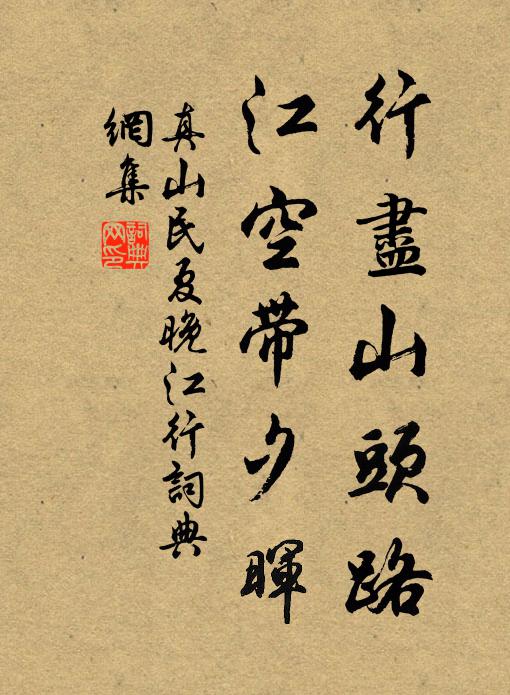 行盡山頭路
江空帶夕暉
真山民夏晚江行詞典
網集
詞典
网印